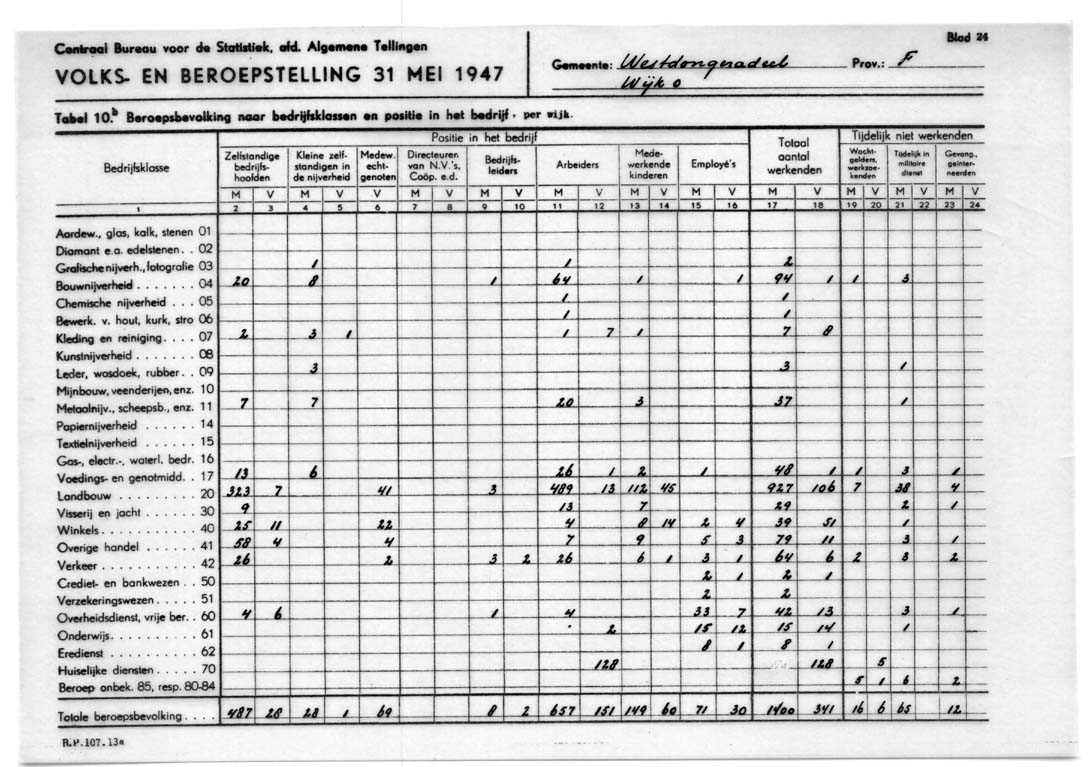 Blad 24
Centraal Bureau voor de Statistiek, afd. Algemene Tellingen
VOLKS- EN BEROEPSTELLING 31 MEI 1947
Gemeente: Westdongeradeel Prov.: F
Wijk 0
Tabel 10.b Beroepsbevolking naar bedrijfsklassen en positie in het bedrijf, per wijk.
Bedrijfsklasse | Positie in het bedrijf | Totaal aantal werkenden | Tijdelijk niet werkenden
Zelfstandige bedrijfshoofden | Kleine zelfstandigen in de nijverheid | Medew. echtgenoten | Directeuren van N.V.'s, Coöp. e.d. | Bedrijfsleiders | Arbeiders | Medewerkende kinderen | Employé's | Wachtgelders, werkzoekenden | Tijdelijk in militaire dienst | Gevang., geïnterneerden
M V M V V M V M V M V M V M V M V M V M V M V
1 2 3 4 5 6 7 8 9 10 11 12 13 14 15 16 17 18 19 20 21 22 23 24
Aardew., glas, kalk, stenen 01
Diamant e.a. edelstenen. . 02
Grafische nijverh., fotografie 03 1 1 2
Bouwnijverheid . . . . . . . 04 20 8 1 64 1 1 94 1 1 3
Chemische nijverheid . . . 05 1 1
Bewerk. v. hout, kurk, stro 06 1 1
Kleding en reiniging. . . . 07 2 3 1 1 7 1 7 8
Kunstnijverheid . . . . . . . 08
Leder, wasdoek, rubber. . 09 3 3 1
Mijnbouw, veenderijen, enz. 10
Metaalnijv., scheepsb., enz. 11 7 7 20 3 37 1
Papiernijverheid . . . . . . 14
Textielnijverheid . . . . . . 15
Gas-, electr.-, waterl. bedr. 16
Voedings- en genotmidd. . 17 13 6 26 1 2 1 48 1 1 3 1
Landbouw . . . . . . . . . 20 323 7 41 3 489 13 112 45 927 106 7 38 4
Visserij en jacht . . . . . . 30 9 13 7 29 2 1
Winkels. . . . . . . . . . . 40 25 11 22 4 8 14 2 4 39 51 1
Overige handel . . . . . . 41 58 4 4 7 9 5 3 79 11 3 1
Verkeer . . . . . . . . . . . 42 26 2 3 2 26 6 1 3 1 64 6 2 3 2
Crediet- en bankwezen . . 50 2 1 2 1
Verzekeringswezen. . . . . 51 2 2
Overheidsdienst, vrije ber. . 60 4 6 1 4 33 7 42 13 3 1
Onderwijs. . . . . . . . . . 61 2 15 12 15 14 1
Eredienst . . . . . . . . . . 62 8 1 8 1
Huiselijke diensten . . . . . 70 128 128 5
Beroep onbek. 85, resp. 80-84 5 1 6 2
Totale beroepsbevolking. . . . 487 28 28 1 69 8 2 657 151 149 60 71 30 1400 341 16 6 65 12
R.P.107.13a